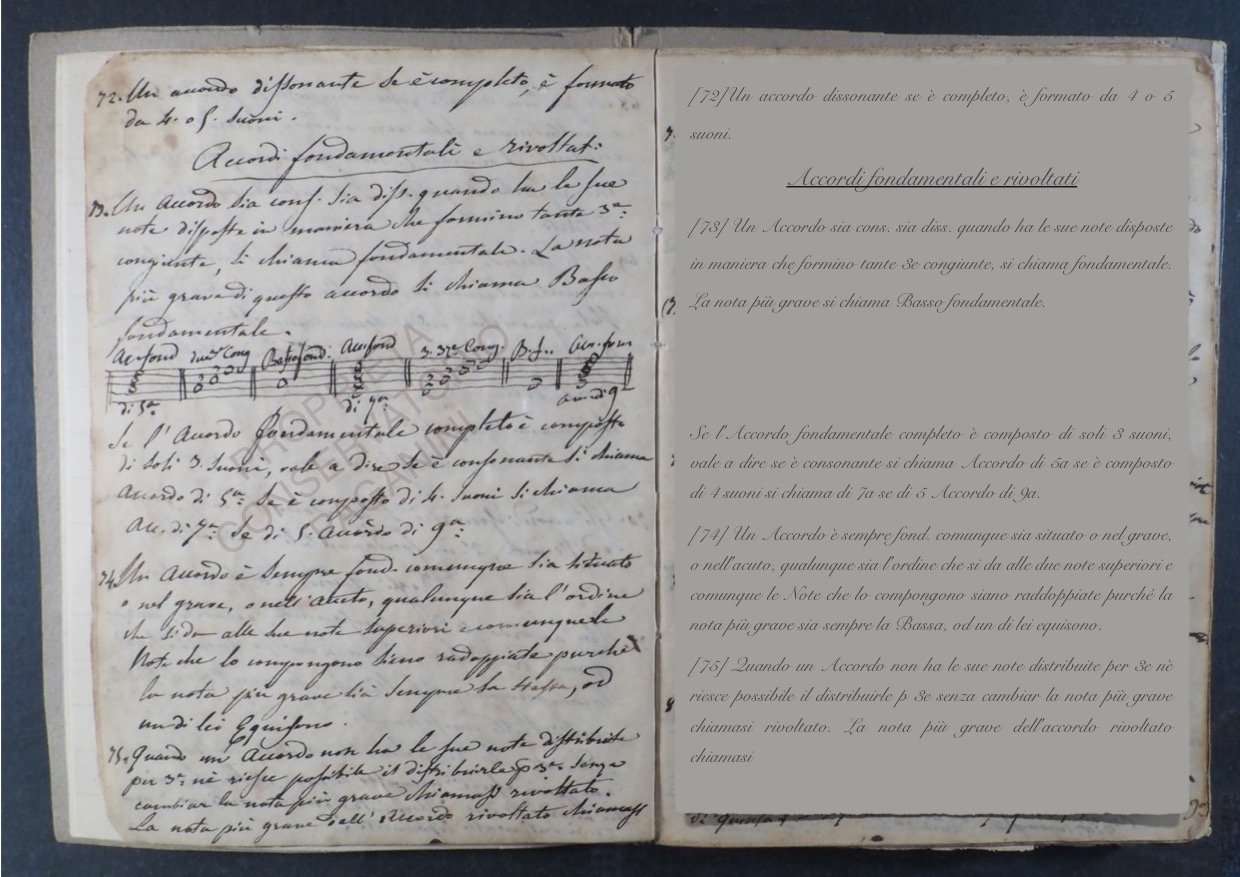 72. Un accordo dissonante se è completo, è formato
da 4. o 5. suoni.
Accordi fondamentali e rivoltati
73. Un Accordo sia cons. sia diss. quando ha le sue
note disposte in maniera che formino tante 3e:
congiunte, si chiama fondamentale. La nota
più grave di questo accordo si chiama Basso
fondamentale.
Acc. fond Cong Basso fond: Acc. fond 3. 3ze Cong. B. f.. Acc. fon
di 5a di 7a di 9
Se l'Accordo fondamentale completo è composto
di soli 3. suoni, vale a dire se è consonante si chiama
Accordo di 5a: Se è composto di 4. suoni si chiama
Acc. di 7a: Se di 5. Accordo di 9a:
74. Un Accordo è sempre fond. comunque sia situato
o nel grave, o nell'acuto, qualunque sia l'ordine
che si da alle sue note superiori e comunque le
Note che lo compongono sieno radoppiate purchè
la nota più grave sia sempre la stessa, od
un di lei Equisono.
75. Quando un Accordo non ha le sue note distribuite
per 3e: nè riesce possibile il distribuirle p 3e: senza
cambiar la nota più grave chiamasi rivoltato.
La nota più grave dell'Accordo rivoltato chiamasi
PROPRIETÀ
CONSERVATORIO
PAGANINI
[72]Un accordo dissonante se è completo, è formato da 4 o 5
suoni.
Accordi fondamentali e rivoltati
[73] Un Accordo sia cons. sia diss. quando ha le sue note disposte
in maniera che formino tante 3e congiunte, si chiama fondamentale.
La nota più grave si chiama Basso fondamentale.
Se l'Accordo fondamentale completo è composto di soli 3 suoni,
vale a dire se è consonante si chiama Accordo di 5a se è composto
di 4 suoni si chiama di 7a se di 5 Accordo di 9a.
[74] Un Accordo è sempre fond. comunque sia situato o nel grave,
o nell'acuto, qualunque sia l'ordine che si da alle due note superiori e
comunque le Note che lo compongono siano raddoppiate purché la
nota più grave sia sempre la Bassa, od un di lei equisono.
[75] Quando un Accordo non ha le sue note distribuite per 3e nè
riesce possibile il distribuirle p 3e senza cambiar la nota più grave
chiamasi rivoltato. La nota più grave dell'accordo rivoltato
chiamasi